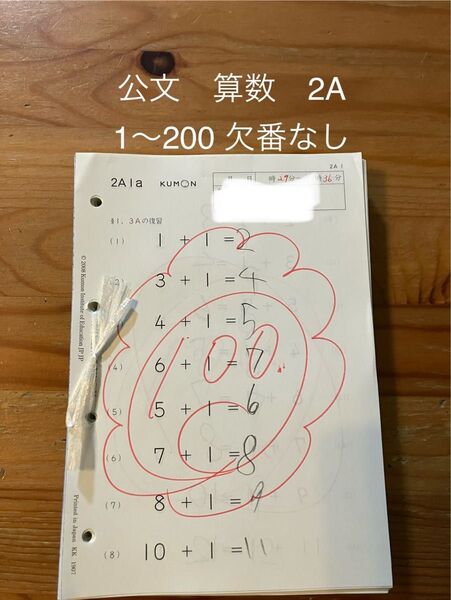 公文 算数 2A
1〜200 欠番なし
2A-1
2A1a KUMON
月 日 時27分〜 時36分
§1. 3Aの復習
(1) 1 + 1 = 2
(2) 3 + 1 = 4
4 + 1 = 5
(4) 6 + 1 = 7
(5) 5 + 1 = 6
(6) 7 + 1 = 8
(7) 8 + 1 = 9
(8) 10 + 1 = 11
100
© 2008 Kumon Institute of Education JP JP
Printed in Japan KK 1907